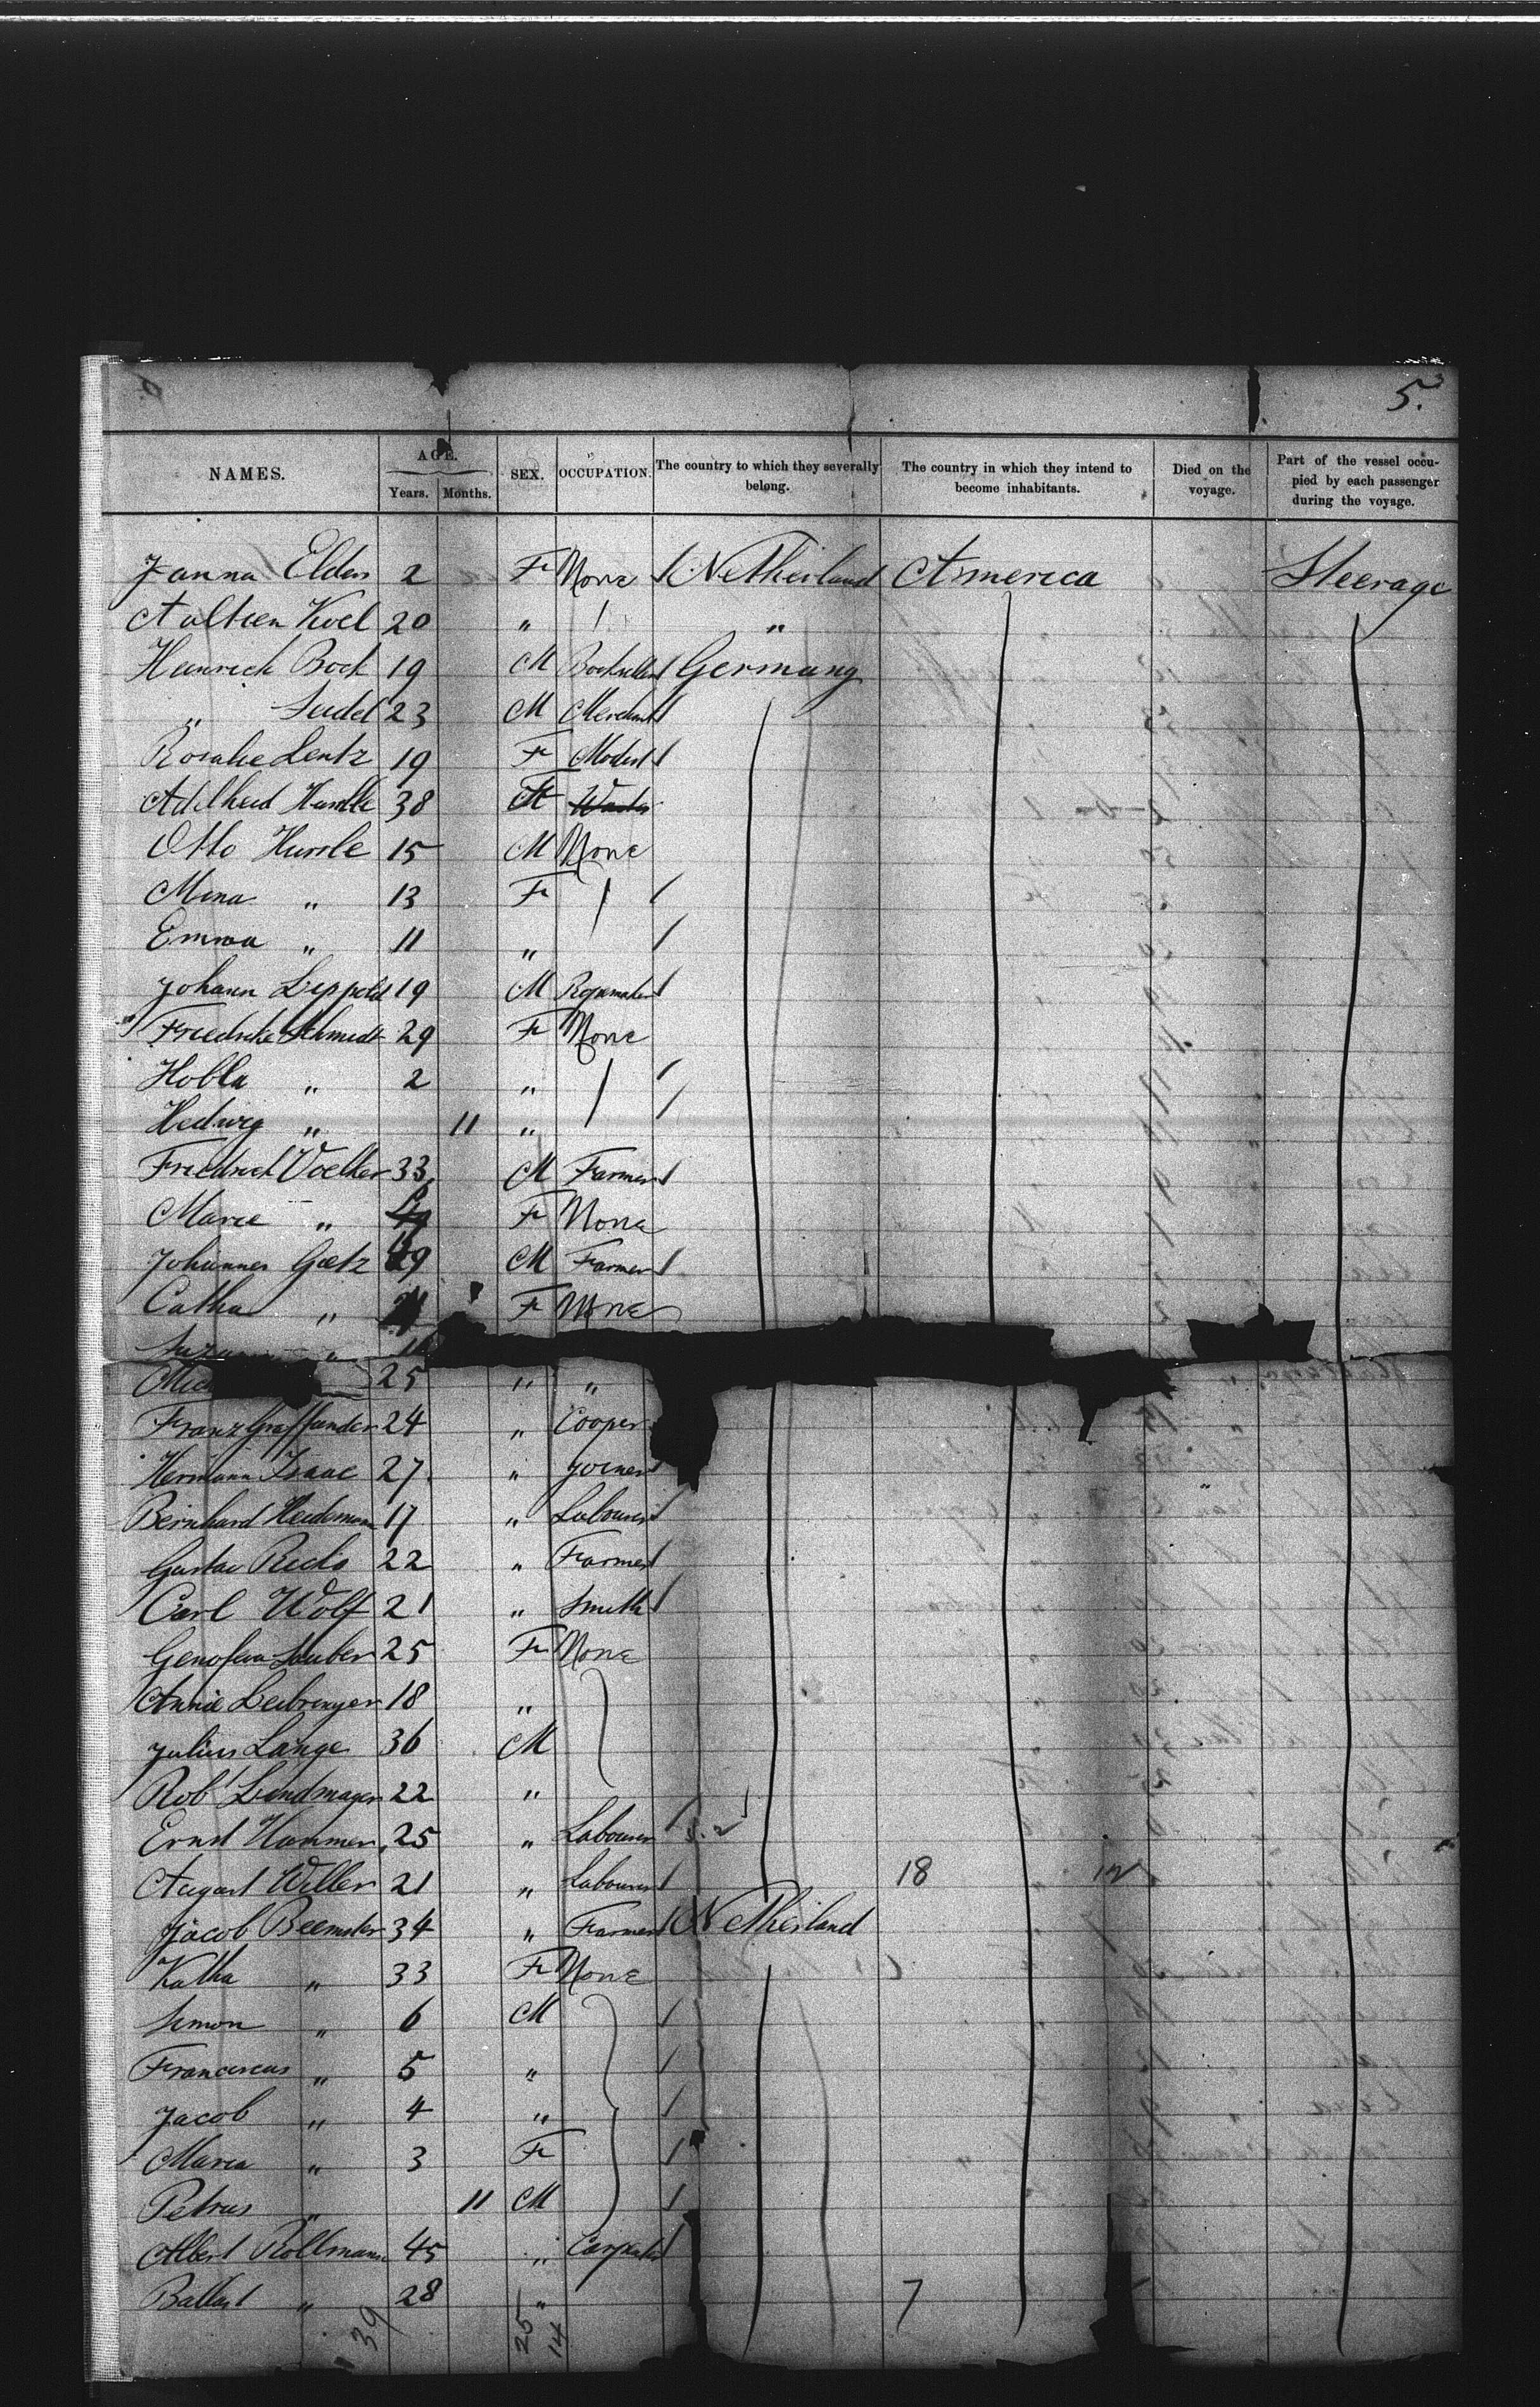 5.
NAMES. AGE. Years. Months. SEX. OCCUPATION. The country to which they severally belong. The country in which they intend to become inhabitants. Died on the voyage. Part of the vessel occupied by each passenger during the voyage.
Janna Elders 2 F None Netherland America Steerage
Aaltien Koel 20 " "
Heinrich Bock 19 M Germany
" Seidel 23 M Merchant
Rosalie Lentz 19 F Modist
Adelheid 38
Otto 15 M None
Mina " 13 F
Emma " 11 "
Johann Leppold 19 M Ropemaker
Friedrike Schmidt 29 F None
" 2 "
Hedwig " 11 "
Friedrich Voelker 33 M Farmer
Marie " F None
Johannes Goetz 49 M Farmer
Catha " F None
"
25 " "
Franz 24 " Cooper
Hermann Isaac 27 " Joiner
Bernhard Heidemann 17 " Labourer
Gustav 22 " Farmer
Carl Wolf 21 " Smith
Genofeva Sauber 25 F None
Annie 18 "
Julius Lange 36 M
Robt Lindmayer 22 "
Ernst Hammer 25 " Labourer
August Willer 21 " Labourer 18
Jacob Beemster 34 " Farmer Netherland
Katha " 33 F None
Simon " 6 M
Franciscus " 5 "
Jacob " 4 "
Maria " 3 F
Petrus " 11 M
Albert Rollmann 45 " Carpenter
" 28 " 7
39 25 14